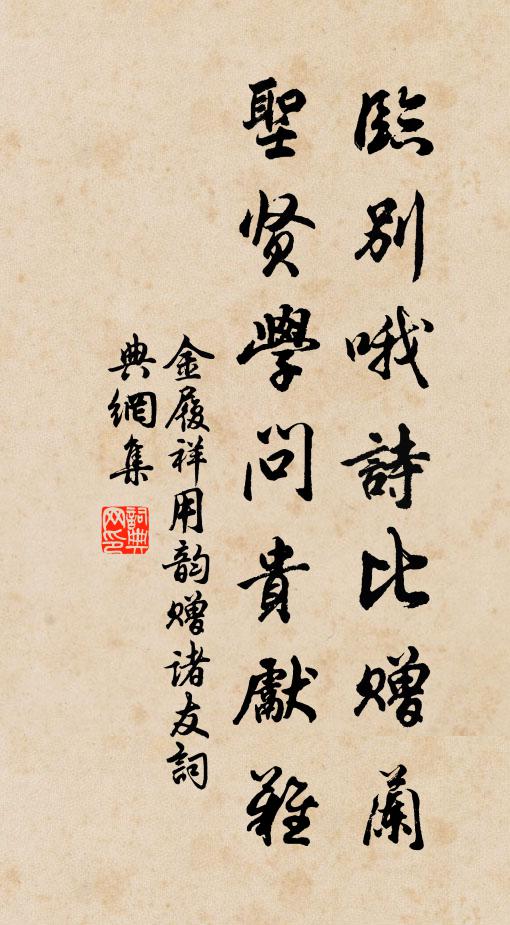 臨别哦詩比赠蘭
聖贤學问貴獻難
金履祥用韵赠诸友詞
典網集
詞典网印